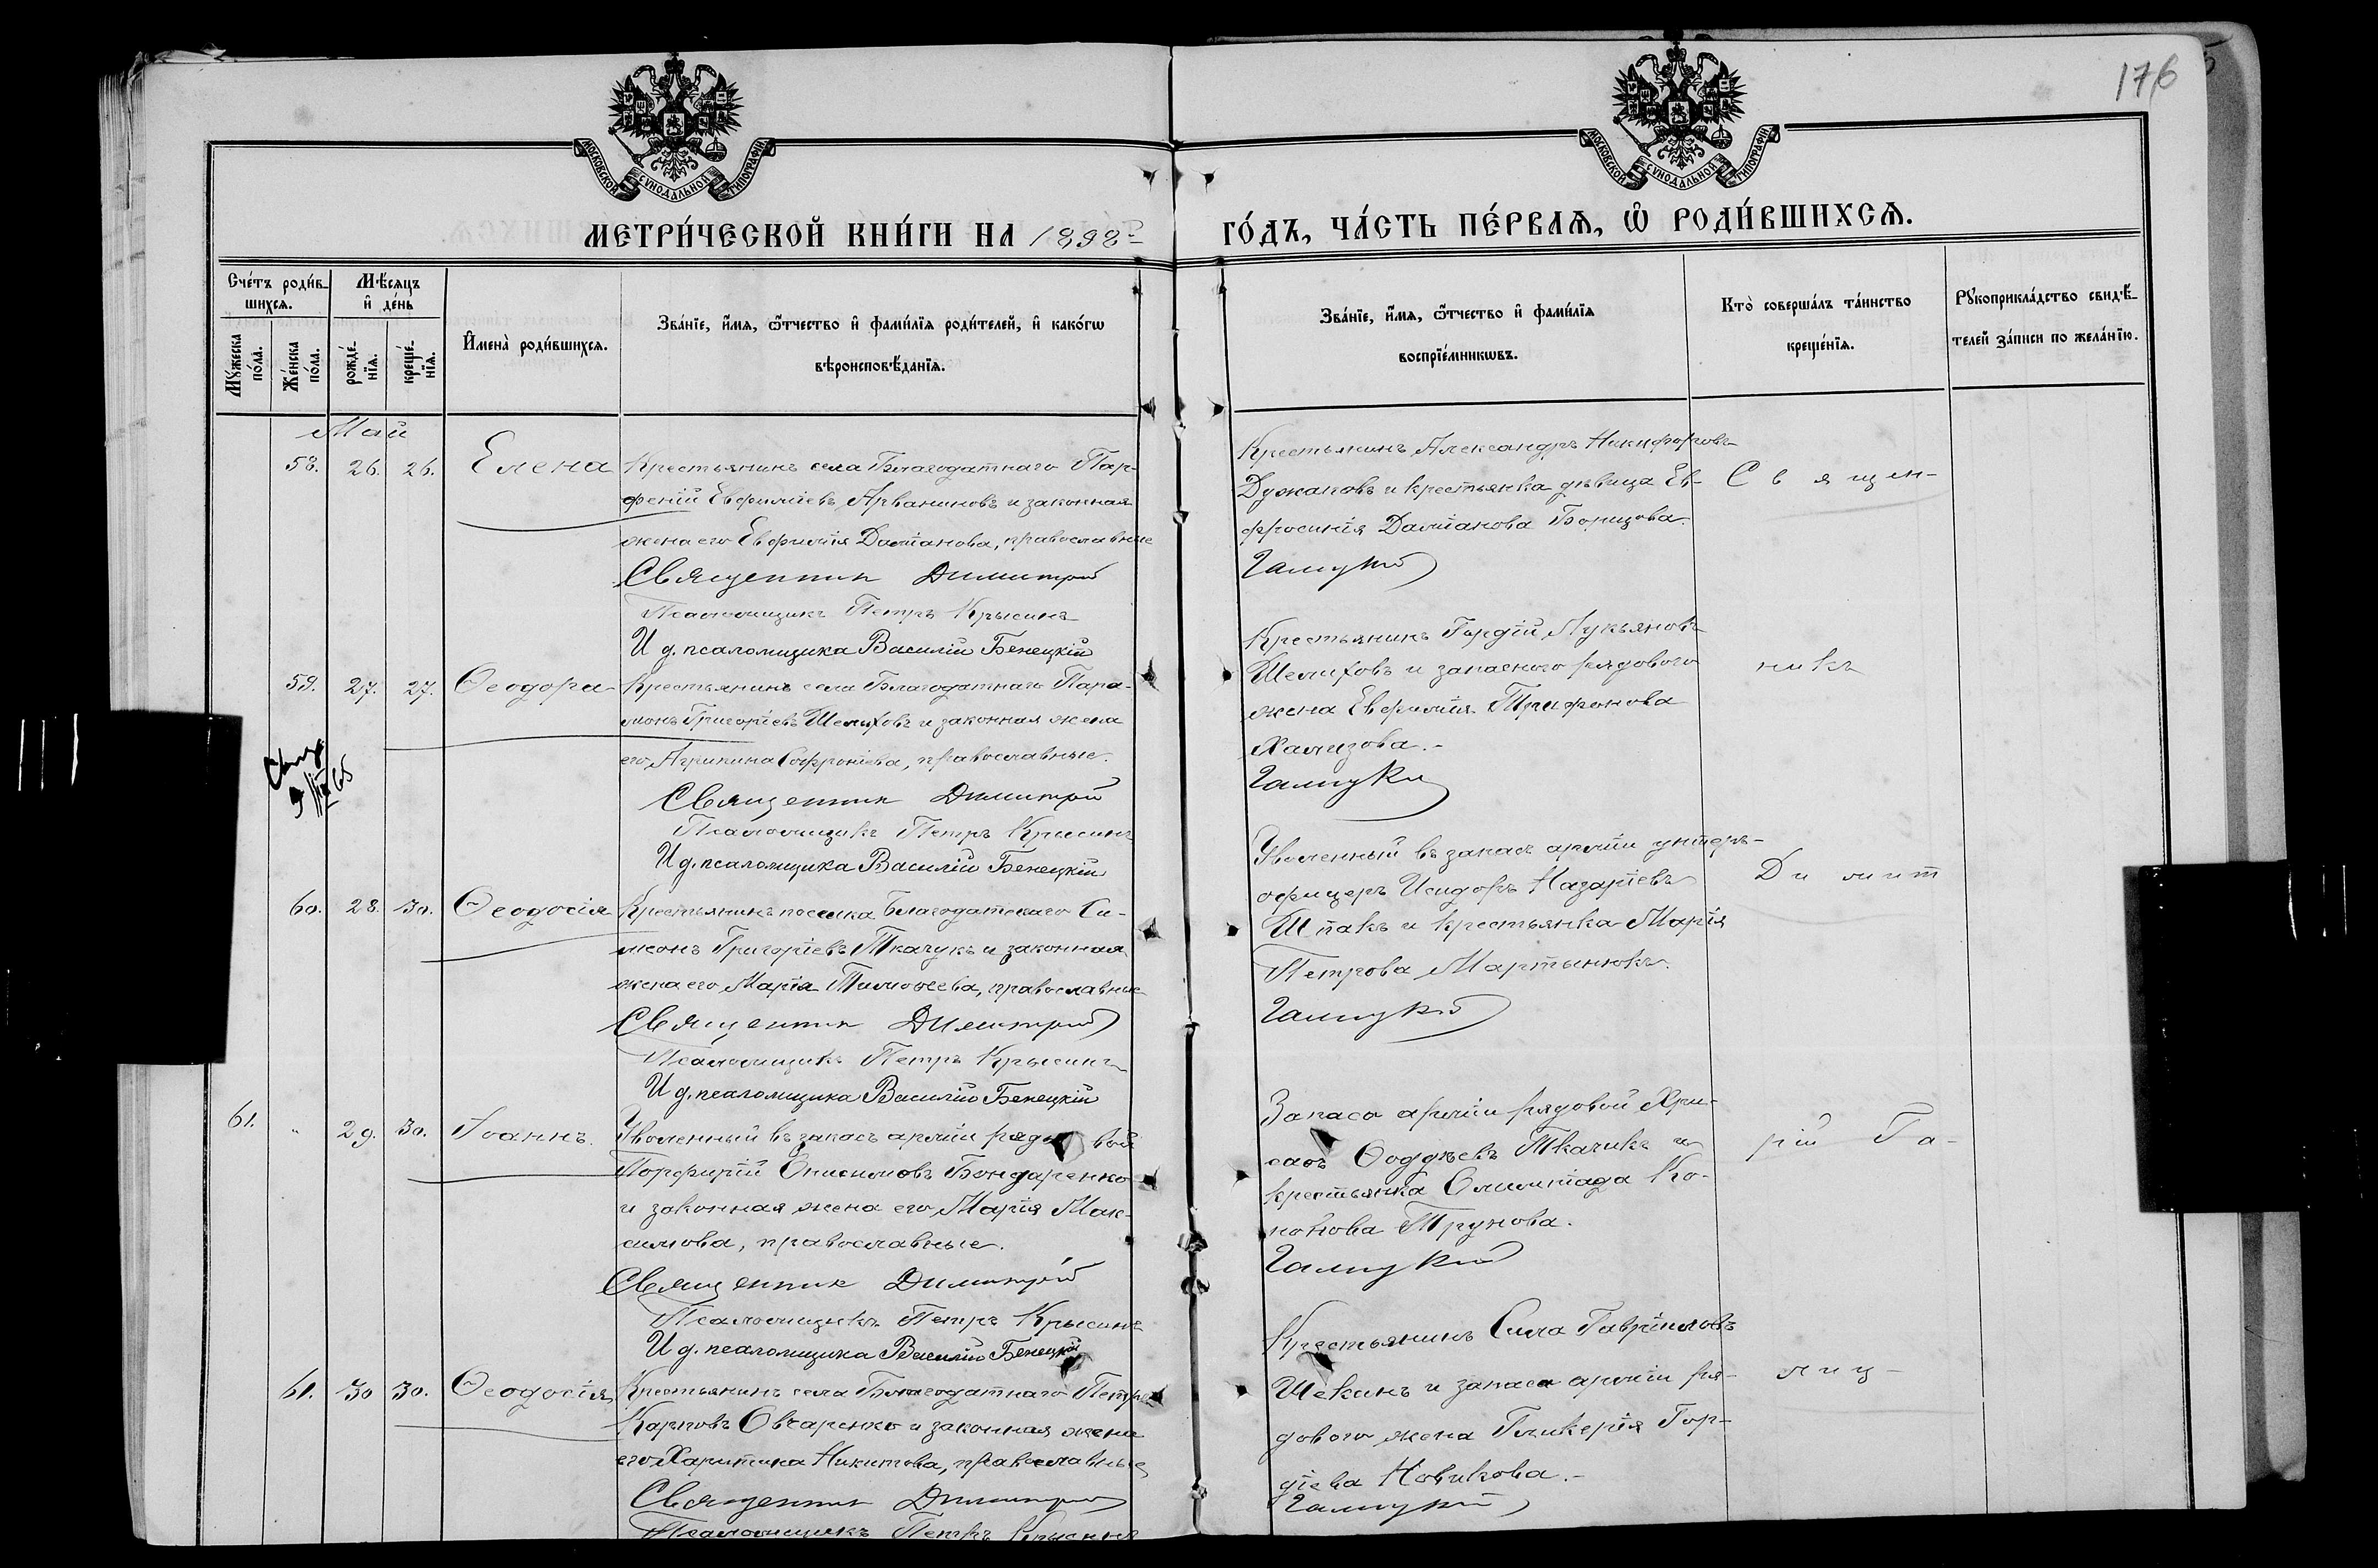 176
МОСКОВСКОЙ СУНОДАЛЬНОЙ ТИПОГРАФІИ
МОСКОВСКОЙ СУНОДАЛЬНОЙ ТИПОГРАФІИ
МЕТРИ́ЧЕСКОЙ КНИ́ГИ НА 1898 ГО́ДЪ, ЧА́СТЬ ПЕ́РВАѦ, Ѡ҆ РОДИ́ВШИХСѦ.
Сче́тъ роди́в-
шихсѧ.
Мѣ́сѧцъ
и҆ де́нь
Мꙋ́жеска по́ла.
Же́нска по́ла.
рожде́-нїѧ.
креще́-нїѧ.
И҆мена̀ роди́вшихсѧ.
Зва́нїе, и҆́мѧ, ѻ҆́тчество и҆ фами́лїѧ роди́телей, и҆ како́гѡ
вѣроисповѣ́данїѧ.
Зва́нїе, и҆́мѧ, ѻ҆́тчество и҆ фами́лїѧ
воспрїе́мникѡвъ.
Кто̀ соверша́лъ та́инство
креще́нїѧ.
Рꙋкоприкла́дство свидѣ́-
телей за́писи по жела́нїю.
Май
58. 26. 26. Елена
Крестьянинъ села Благодатнаго Пар-
фенiй Евфимiевъ Арваниновъ и законная
жена его Евфимiя Дамiанова, православные
Священник Димитрий
Псаломщикъ Петръ Крысинъ
И д. псаломщика Василiй Бенецкiй
Крестьянинъ Александръ Никифоровъ
Дужановъ и крестьянка дѣвица Ев-
фросинiя Дамiанова Борщова.
Галицкiй
Священ-
59. 27. 27. Ѳеодора
Крестьянинъ села Благодатнаго Пара-
монъ Григорiевъ Шелиховъ и законная жена
его Агрипина Софронiева, православные.
Священник Димитрий
Псаломщикъ Петръ Крысинъ
И д. псаломщика Василiй Бенецкiй
Крестьянинъ Гордiй Лукьяновъ
Шелиховъ и запаснаго рядового
жена Евфимiя Трифонова
Хализова.-
Галицкiй
никъ
60. 28. 30. Ѳеодосiя
Крестьянинъ поселка Благодатскаго Си-
меонъ Григорiевъ Ткачукъ и законная
жена его Марiя Тимоѳеева, православные
Священник Димитрий
Псаломщикъ Петръ Крысинъ
И д. псаломщика Василiй Бенецкiй
Уволенный въ запасъ армiи унтеръ-
офицеръ Исидоръ Назарiевъ
Шпакъ и крестьянка Марiя
Петрова Мартынюкъ.
Галицкiй
Димит
61. " 29. 30. Iоаннъ.
Уволенный въ запасъ армiи рядовой
Порфирiй Онисимовъ Бондаренко
и законная жена его Марiя Мак-
симова, православные.
Священник Димитрий
Псаломщикъ Петръ Крысинъ
И д. псаломщика Василiй Бенецкiй
Запаса армiи рядовой Хри-
Ткачикъ и
крестьянка Олимпiада Ко-
нонова Трунова.
Галицкiй
рiй Га-
61. 30 30. Ѳеодосiя
Крестьянинъ села Благодатнаго Петръ
Карповъ Овчаренко и законная жена
его Харитина Никитова, православные
Священник Димитрий
Псаломщикъ Петръ Крысинъ
Крестьянинъ Сила Гаврiиловъ
Шекинъ и запаса армiи ря-
дового жена Гликерiя Гор-
дiева Новикова.-
Галицкiй
лиц-